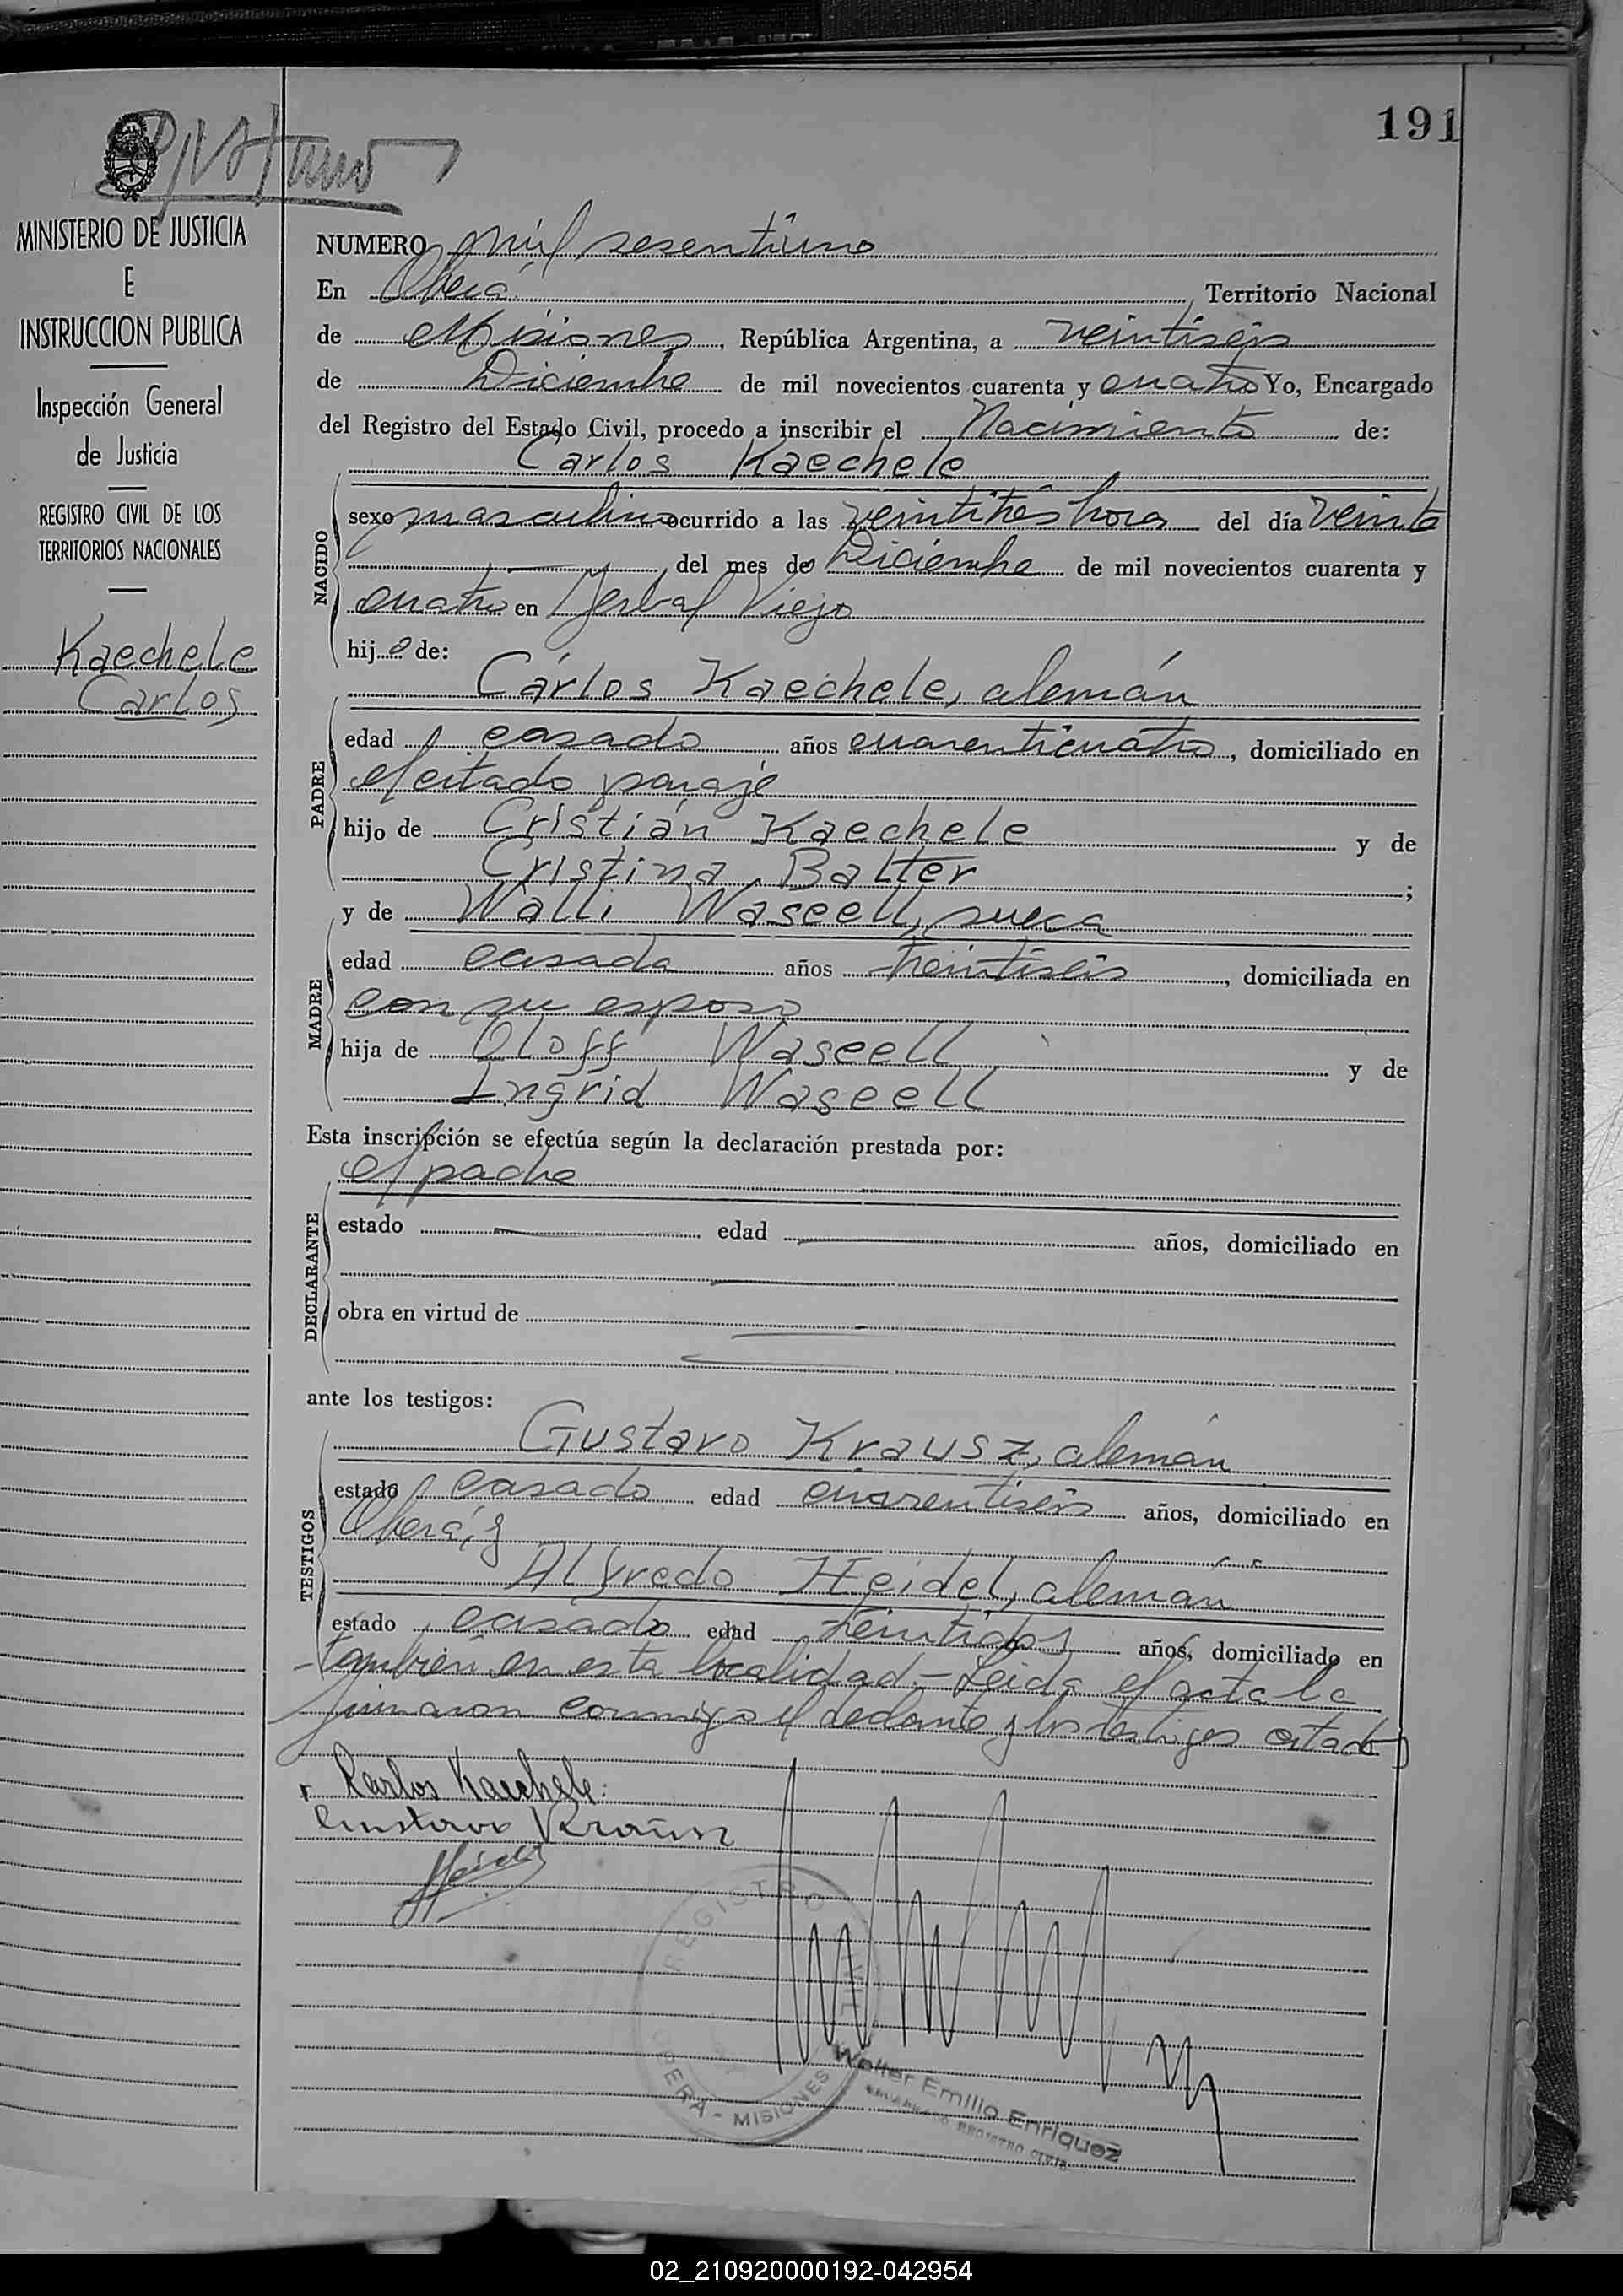 191
MINISTERIO DE JUSTICIA
E
INSTRUCCION PUBLICA
Inspección General
de Justicia
REGISTRO CIVIL DE LOS
TERRITORIOS NACIONALES
Kaechele
Carlos
NUMERO mil sesentiuno
En Oberá, Territorio Nacional
de Misiones, República Argentina, a veintiseis
de Diciembre de mil novecientos cuarenta y cuatro Yo, Encargado
del Registro del Estado Civil, procedo a inscribir el Nacimiento de:
Carlos Kaechele
NACIDO
sexo masculino ocurrido a las veintitrés horas del día veinte
del mes de Diciembre de mil novecientos cuarenta y
cuatro en Yerbal Viejo
hijo de:
Cárlos Kaechele, alemán
PADRE
edad casado años cuarenticuatro, domiciliado en
el citado paraje
hijo de Cristián Kaechele y de
Cristina Balter;
y de Walli Waseell, sueca
MADRE
edad casada años treintiseis, domiciliada en
con su esposo
hija de Oloff Waseell y de
Ingrid Waseell
Esta inscripción se efectúa según la declaración prestada por:
el padre
DECLARANTE
estado edad años, domiciliado en
obra en virtud de
ante los testigos:
Gustavo Krausz, alemán
TESTIGOS
estado casado edad cuarentiseis años, domiciliado en
Oberá, y
Alfredo Heidel, alemán
estado casado edad treintidos años, domiciliado en
también en esta localidad - Leida el acta la
firmaron conmigo el declante y los testigos citados
Karlos Kaechele
Gustavo Krausz
REGISTRO CIVIL
OBERÁ - MISIONES
Walter Emilio Enriquez
ENCARGADO REGISTRO CIVIL
02_210920000192-042954